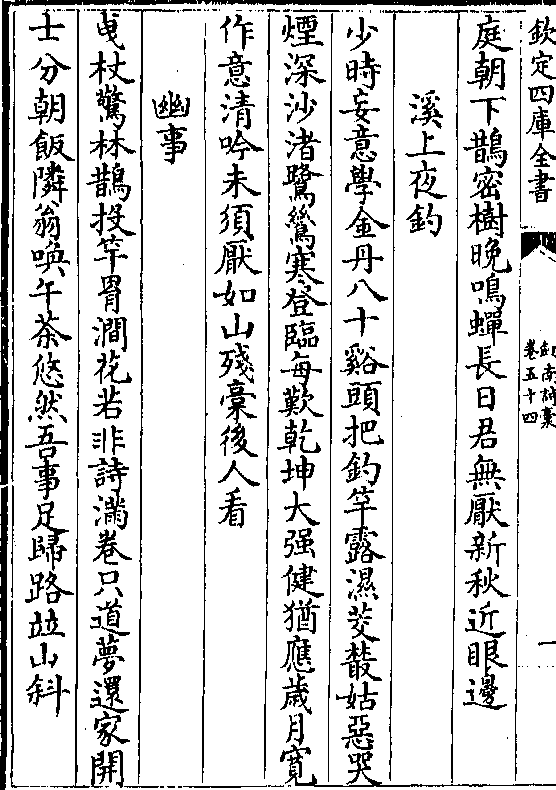 欽定四庫全書
劔南詩藁
卷五十四
一
庭朝下鵲密樹晚鳴蟬長日君無厭新秋近眼邊
溪上夜釣
少時妄意學金丹八十谿頭把釣竿露濕茭叢姑惡哭
煙深沙渚鷺鷥寒登臨每歎乾坤大强健猶應歲月寛
作意清吟未須厭如山殘藁後人看
幽事
曵杖驚林鵲投竿罥澗花若非詩滿卷只道夢還家開
士分朝飯隣翁喚午茶悠然吾事足歸路並山斜